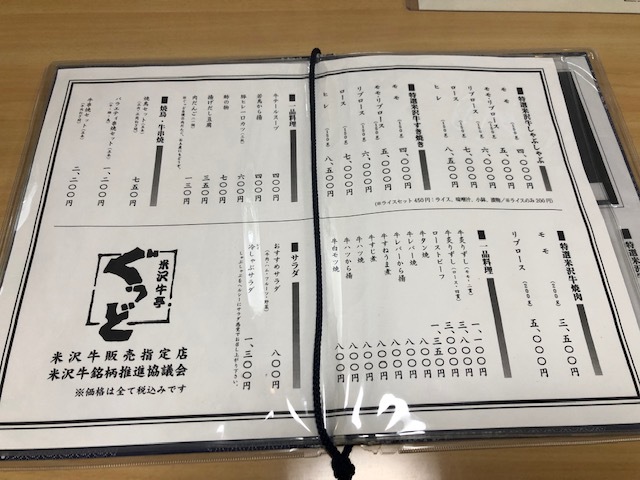 特選米沢牛しゃぶしゃぶ
モモ (200g) 五、〇〇〇円
モモ・リブロース (200g) 六、〇〇〇円
リブロース (200g)
ロース (200g) 七、〇〇〇円
ヒレ (200g) 八、五〇〇円
特選米沢牛すき焼き
モモ (200g) 五、〇〇〇円
モモ・リブロース (200g) 六、〇〇〇円
リブロース (200g)
ロース (200g) 七、〇〇〇円
ヒレ (200g) 八、五〇〇円
(※ライスセット 450円:ライス、味噌汁、小鉢、漬物/※ライスのみ 200円)
特選米沢牛焼肉
モモ (200g) 三、五〇〇円
リブロース (200g) 五、〇〇〇円
一品料理
牛炙りずし 一、一〇〇円
牛炙りずし 三、八〇〇円
ローストビーフ 一、三五〇円
牛タン焼 八〇〇円
牛レバー焼 八〇〇円
牛レバーから揚 八〇〇円
牛すねうま煮 八〇〇円
牛すじ煮 八〇〇円
牛ハツから揚 八〇〇円
牛ハツ焼 八〇〇円
牛白モツ焼 八〇〇円
一品料理
牛テールスープ 四〇〇円
若鳥から揚 四〇〇円
豚ヒレ一口カツ 六〇〇円
酢の物 五〇〇円
揚げだし豆腐 三五〇円
肉だんご 一三〇円
焼鳥・牛串焼
焼鳥セット 七五〇円
バラエティ焼セット 一、二〇〇円
牛串焼セット 二、二〇〇円
サラダ
おすすめサラダ 八〇〇円
冷しゃぶサラダ 一、三〇〇円
米沢牛亭
ぐっど
米沢牛販売指定店
米沢牛銘柄推進協議会
※価格は全て税込みです
特選米沢牛